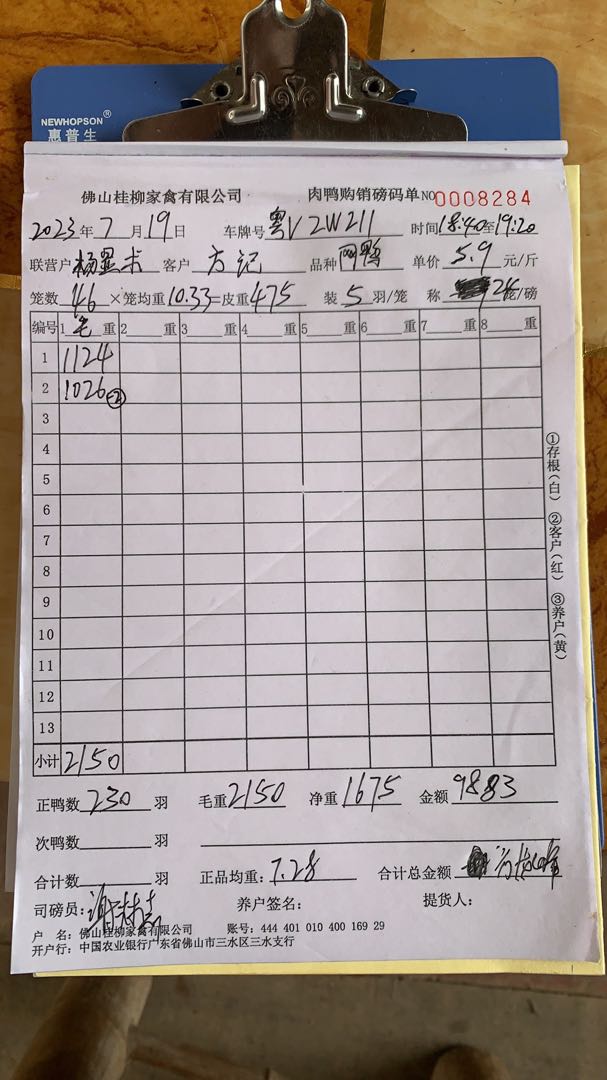 NEWHOPSON®
惠普生
佛山桂柳家禽有限公司 肉鸭购销磅码单 NO 0008284
2023年7月19日 车牌号 粤V2W211 时间18:40至19:20
联营户 杨显 客户 方记 品种 鸭 单价 5.9 元/斤
笼数 46 ×笼均重10.33=皮重475 装 5 羽/笼 称 24 笼/磅
编号 1 毛 重 2 重 3 重 4 重 5 重 6 重 7 重 8 重
1 1124
2 1026 -②
3
4
5
6
7
8
9
10
11
12
13
小计 2150
①存根(白) ②客户(红) ③养户(黄)
正鸭数 230 羽 毛重2150 净重1675 金额 9883
次鸭数 羽
合计数 羽 正品均重: 7.28 合计总金额
司磅员: 养户签名: 提货人:
户 名: 佛山桂柳家禽有限公司 账号: 444 401 010 400 169 29
开户行: 中国农业银行广东省佛山市三水区三水支行